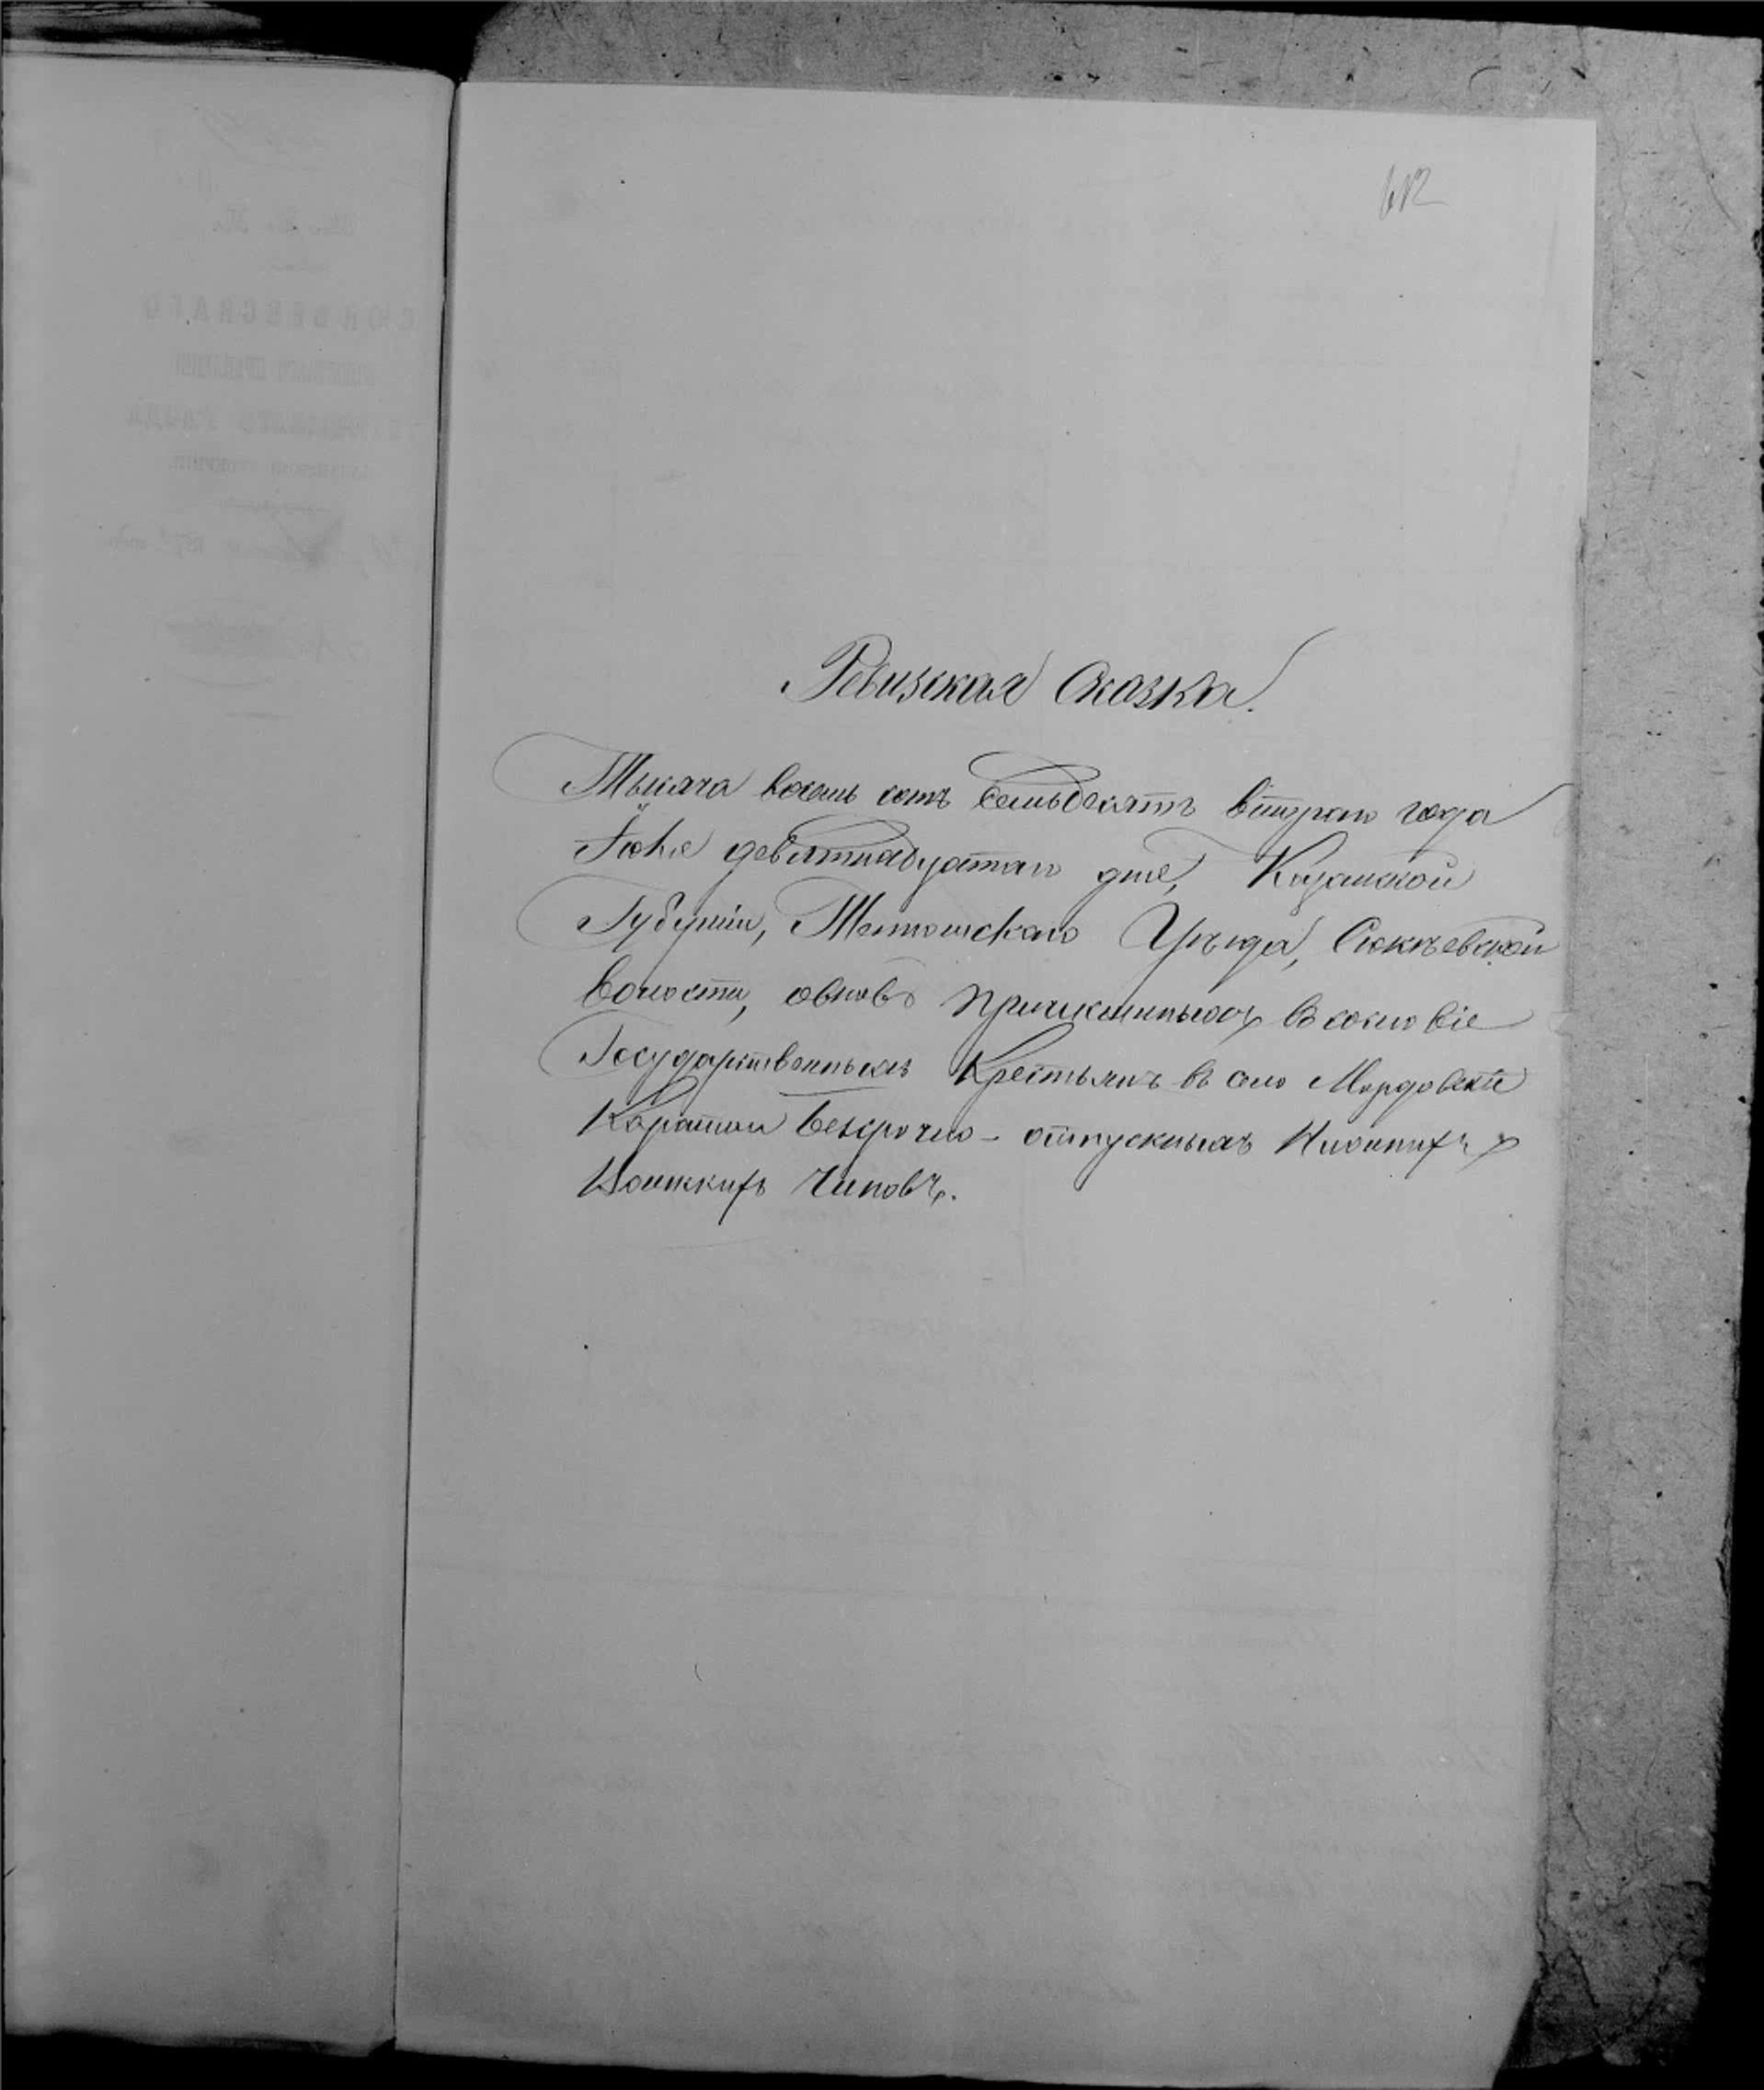 612
Ревизская Сказка.
Тысяча восемь сотъ семьдесятъ втораго года
Іюня девятнадцатаго дня, Казанской
Губерніи, Тетюшскаго Уѣзда, Сюкѣевской
Волости, о вновь причисленныхъ въ сословіе
Государственныхъ Крестьянъ въ село Мордовскіе
Каратаи безсрочно-отпускныхъ Нижнихъ
Воинскихъ Чиновъ.